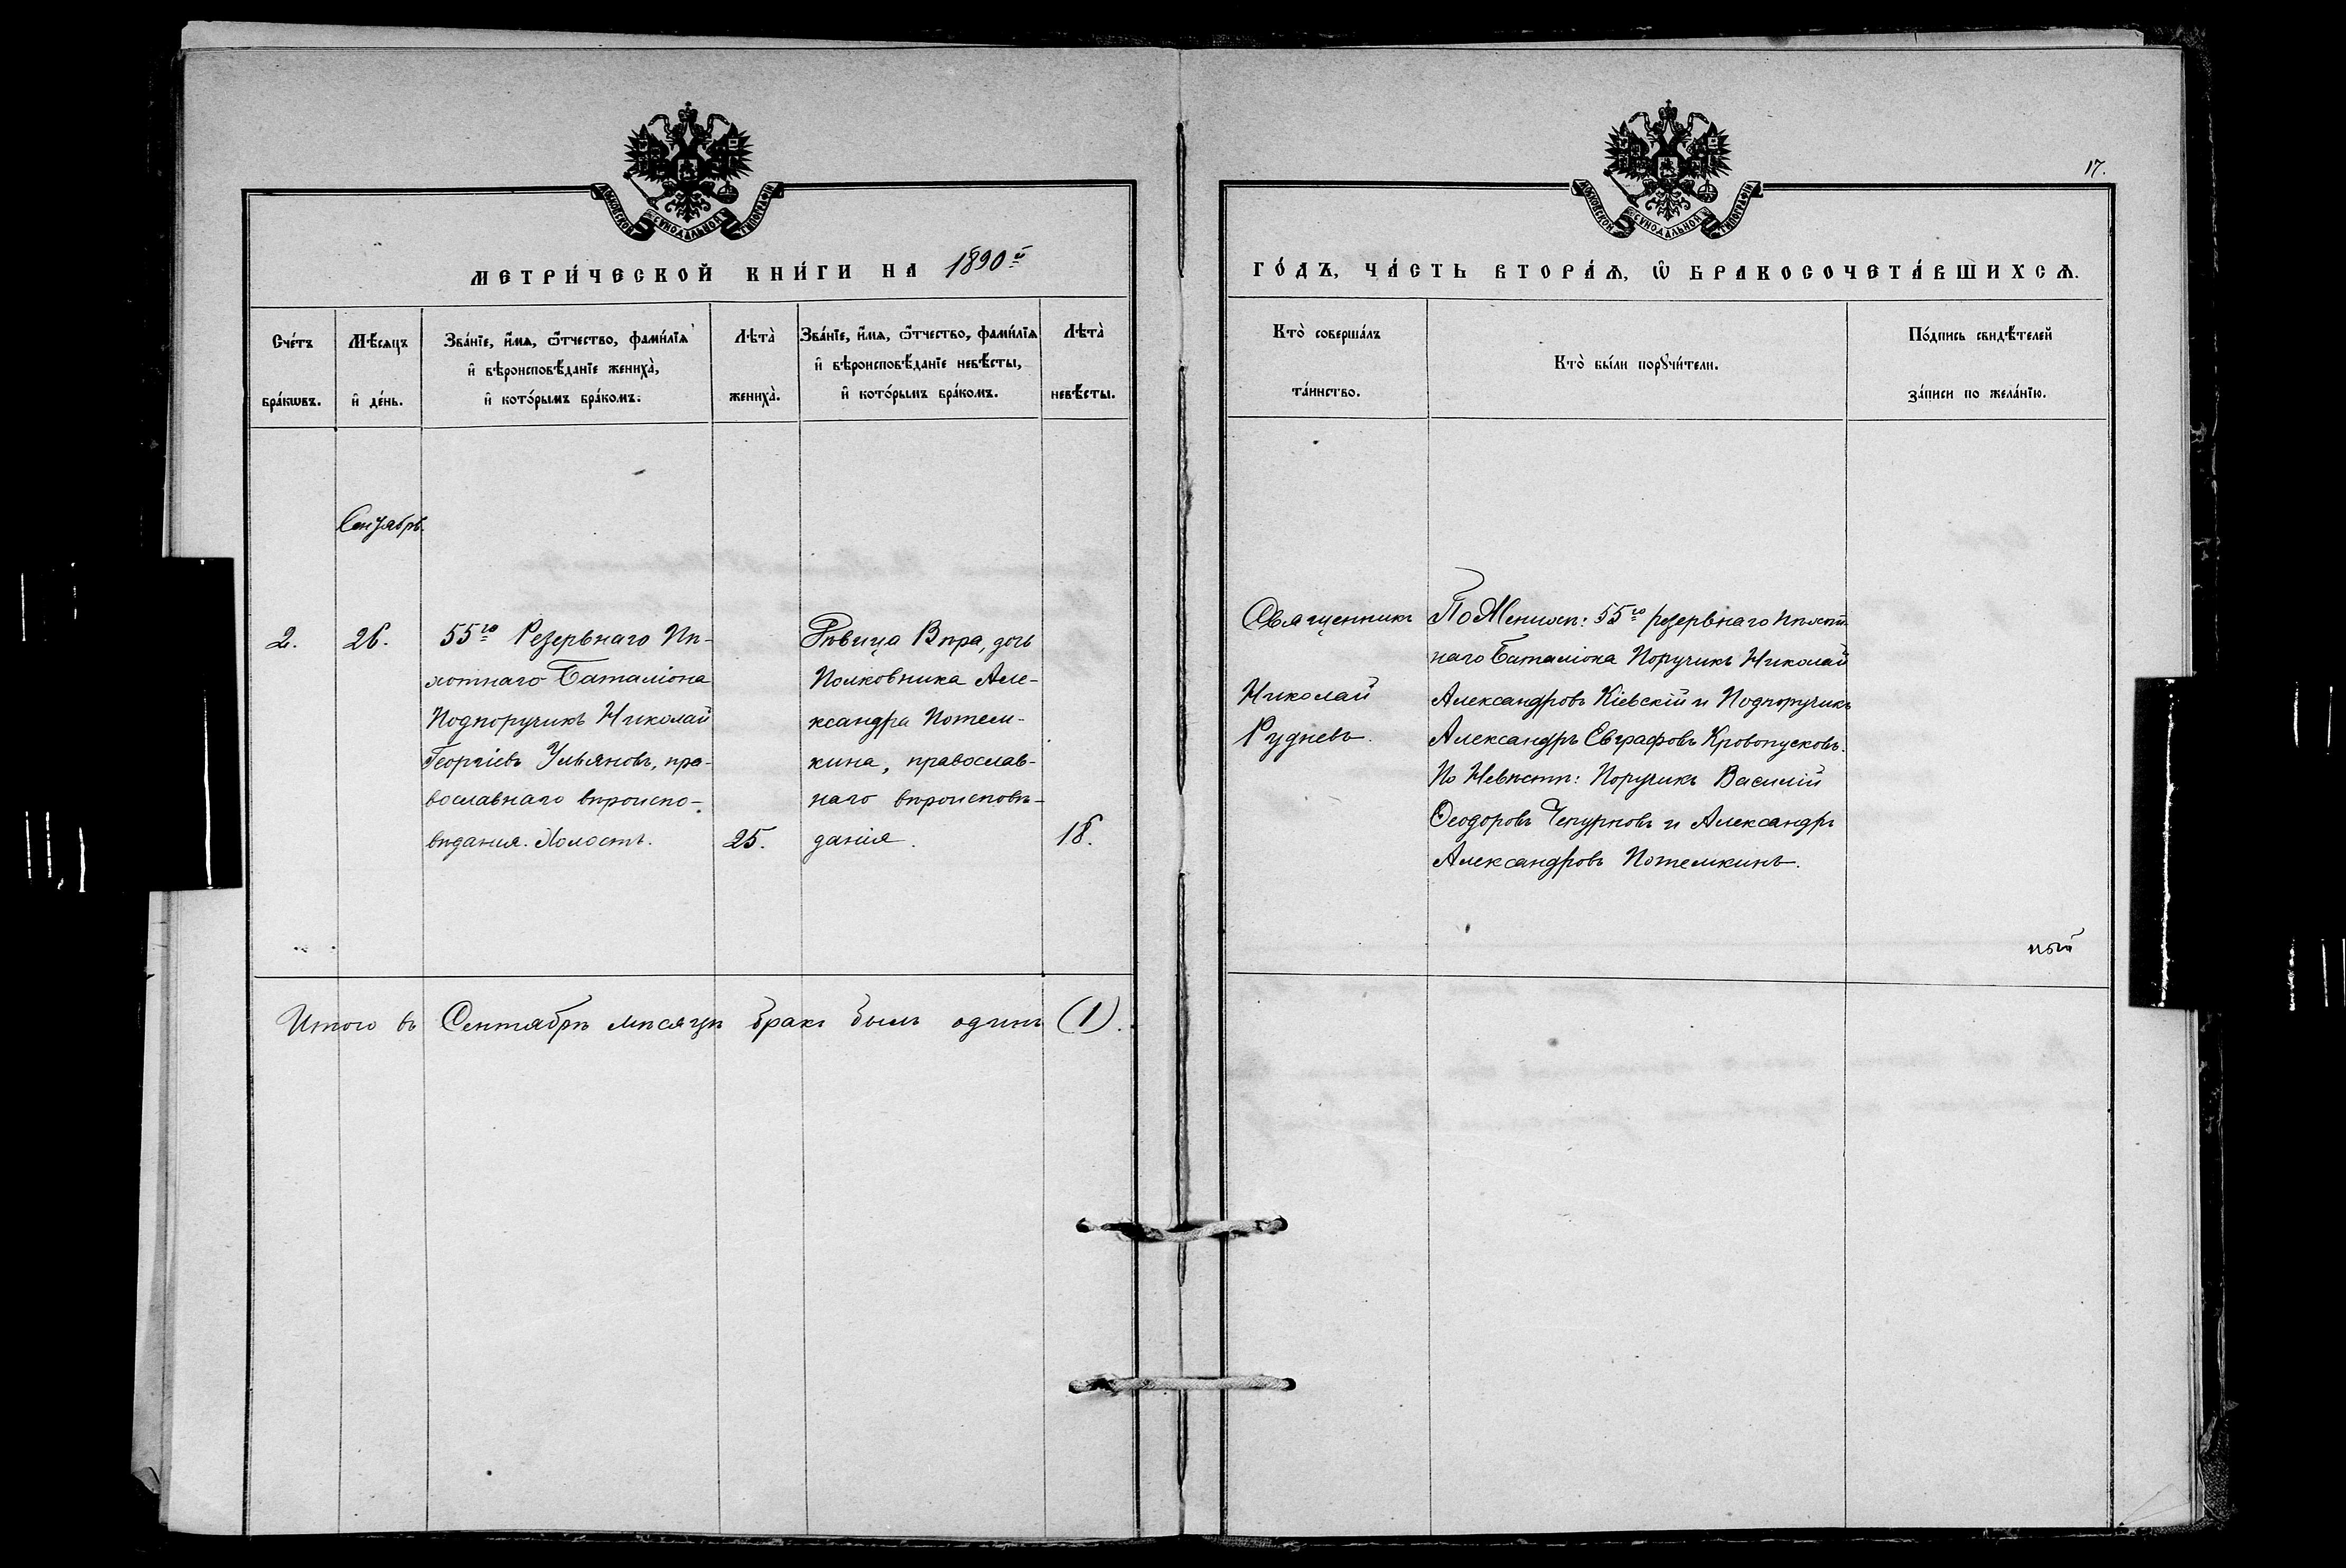 МОСКОВСКОЙ СѴНОДАЛЬНОЙ ТИПОГРАФІИ
МОСКОВСКОЙ СѴНОДАЛЬНОЙ ТИПОГРАФІИ
17.
МЕТРИ́ЧЕСКОЙ КНИ́ГИ НА 1890й
ГО́ДЪ, ЧА́СТЬ ВТОРА́Ѧ, Ѡ҆ БРАКОСОЧЕТА́ВШИХСѦ.
Сче́тъ бра́кѡвъ.
Мѣ́сяцъ и҆ де́нь.
Зва́нїе, и҆́мѧ, ѻ҆́тчество, фами́лїѧ и҆ вѣроисповѣ́данїе жениха̀, и҆ кото́рымъ бра́комъ.
Лѣта̀ жениха̀.
Зва́нїе, и҆́мѧ, ѻ҆́тчество, фами́лїѧ и҆ вѣроисповѣ́данїе невѣ́сты, и҆ кото́рымъ бра́комъ.
Лѣта̀ невѣ́сты.
Кто̀ соверша́лъ та́инство.
Кто̀ бы́ли порꙋчи́тели.
По́дпись свидѣ́телей за́писи по жела́нїю.
Сентябрь.
2.
26.
55го Резервнаго Пѣ-
хотнаго Баталіона
Подпоручикъ Николай
Георгіевъ Ульяновъ, пра-
вославнаго вѣроиспо-
вѣдания. Холостъ.
25.
Дѣвица Вѣра, дочь
Полковника Але-
ксандра Потем-
кина, православ-
наго вѣроисповѣ-
данія.
18.
Священникъ
Николай
Рудневъ.
По Женихѣ: 55го резервнаго Пѣхот-
наго Баталіона Поручикъ Николай
Александровъ Кіевскій и Подпоручикъ
Александръ Евграфовъ Кровопусковъ.
По Невѣстѣ: Поручикъ Василій
Ѳеодоровъ Чепурновъ и Александръ
Александровъ Потемкинъ.
ный
Итого въ Сентябрѣ мѣсяцѣ бракъ былъ одинъ (1).